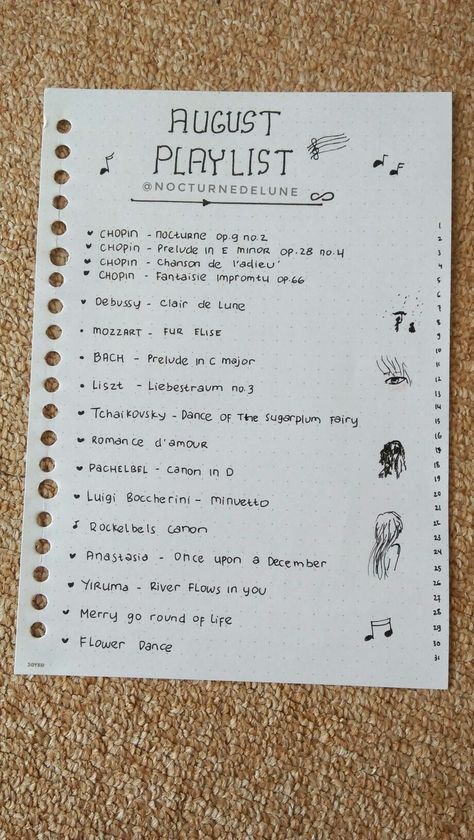 AUGUST
PLAYLIST
@NOCTURNEDELUNE
CHOPIN - nocturne op.9 no.2
CHOPIN - Prelude in E minor op.28 no.4
CHOPIN - Chanson de l'adieu'
CHOPIN - Fantaisie impromtu op.66
Debussy - clair de Lune
MOZZART - FUR ELISE
BACH - Prelude in C major
Liszt - Liebestraum no.3
Tchaikovsky - Dance of The sugarplum Fairy
Romance d'amour
PACHELBEL - canon in D
Luigi Boccherini - minuetto
Rockelbels canon
Anastasia - Once upon a December
Yiruma - River Flows in you
Merry go round of life
Flower Dance
1
2
3
4
5
6
7
8
9
10
11
12
13
14
15
16
17
18
19
20
21
22
23
24
25
26
27
28
29
30
31